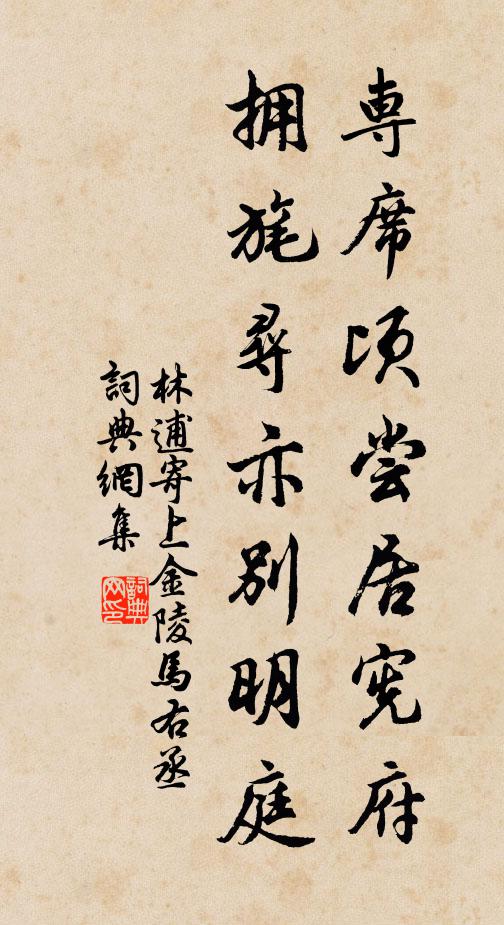 専席頃尝居宪府
拥旄尋亦别明庭
林逋寄上金陵馬右丞
詞典網集
詞典网印